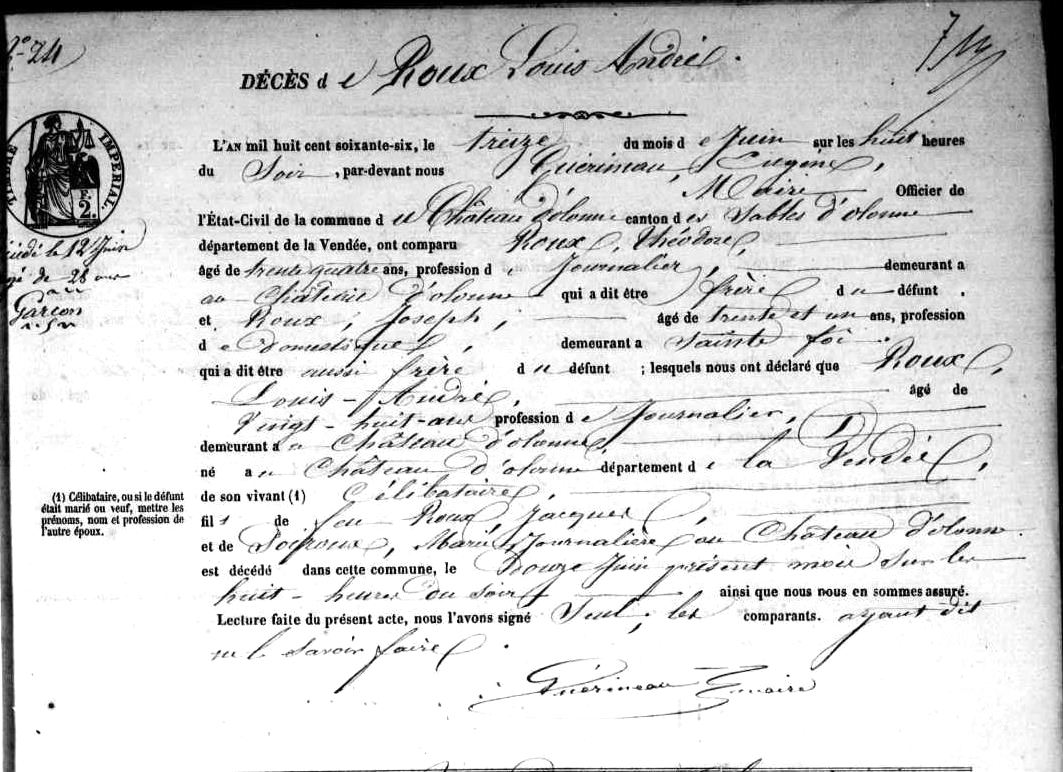 N° 24
DÉCÈS de Roux Louis André.
L'AN mil huit cent soixante-six, le treize du mois de Juin sur les huit heures
du Soir, par-devant nous Guérineau, Eugène,
Maire Officier de
l'État-Civil de la commune du Château d'olonne canton des Sables d'olonne
département de la Vendée, ont comparu Roux, Théodore
âgé de trente quatre ans, profession de Journalier, demeurant a
au Château d'olonne qui a dit être frère du défunt,
et Roux, Joseph, âgé de trente et un ans, profession
de domestique, demeurant a Sainte foi.
qui a dit être aussi frère du défunt ; lesquels nous ont déclaré que Roux,
Louis-André, âgé de
Vingt-huit-ans profession de Journalier,
demeurant au Château d'olonne,
né au Château d'olonne département de la Vendée,
de son vivant (1) Célibataire,
fils de feu Roux, Jacques,
et de Marie, Journalière au Château d'olonne.
est décédé dans cette commune, le Douze Juin présent mois sur les
huit-heures du soir ainsi que nous nous en sommes assuré.
Lecture faite du présent acte, nous l'avons signé Seul, les comparants. ayant dit
ne le savoir faire.
Guérineau maire
TIMBRE IMPÉRIAL
F.
2.
décédé le 12 Juin
âgé de 28 ans
Garçon
(1) Célibataire, ou si le défunt
était marié ou veuf, mettre les
prénoms, nom et profession de
l'autre époux.